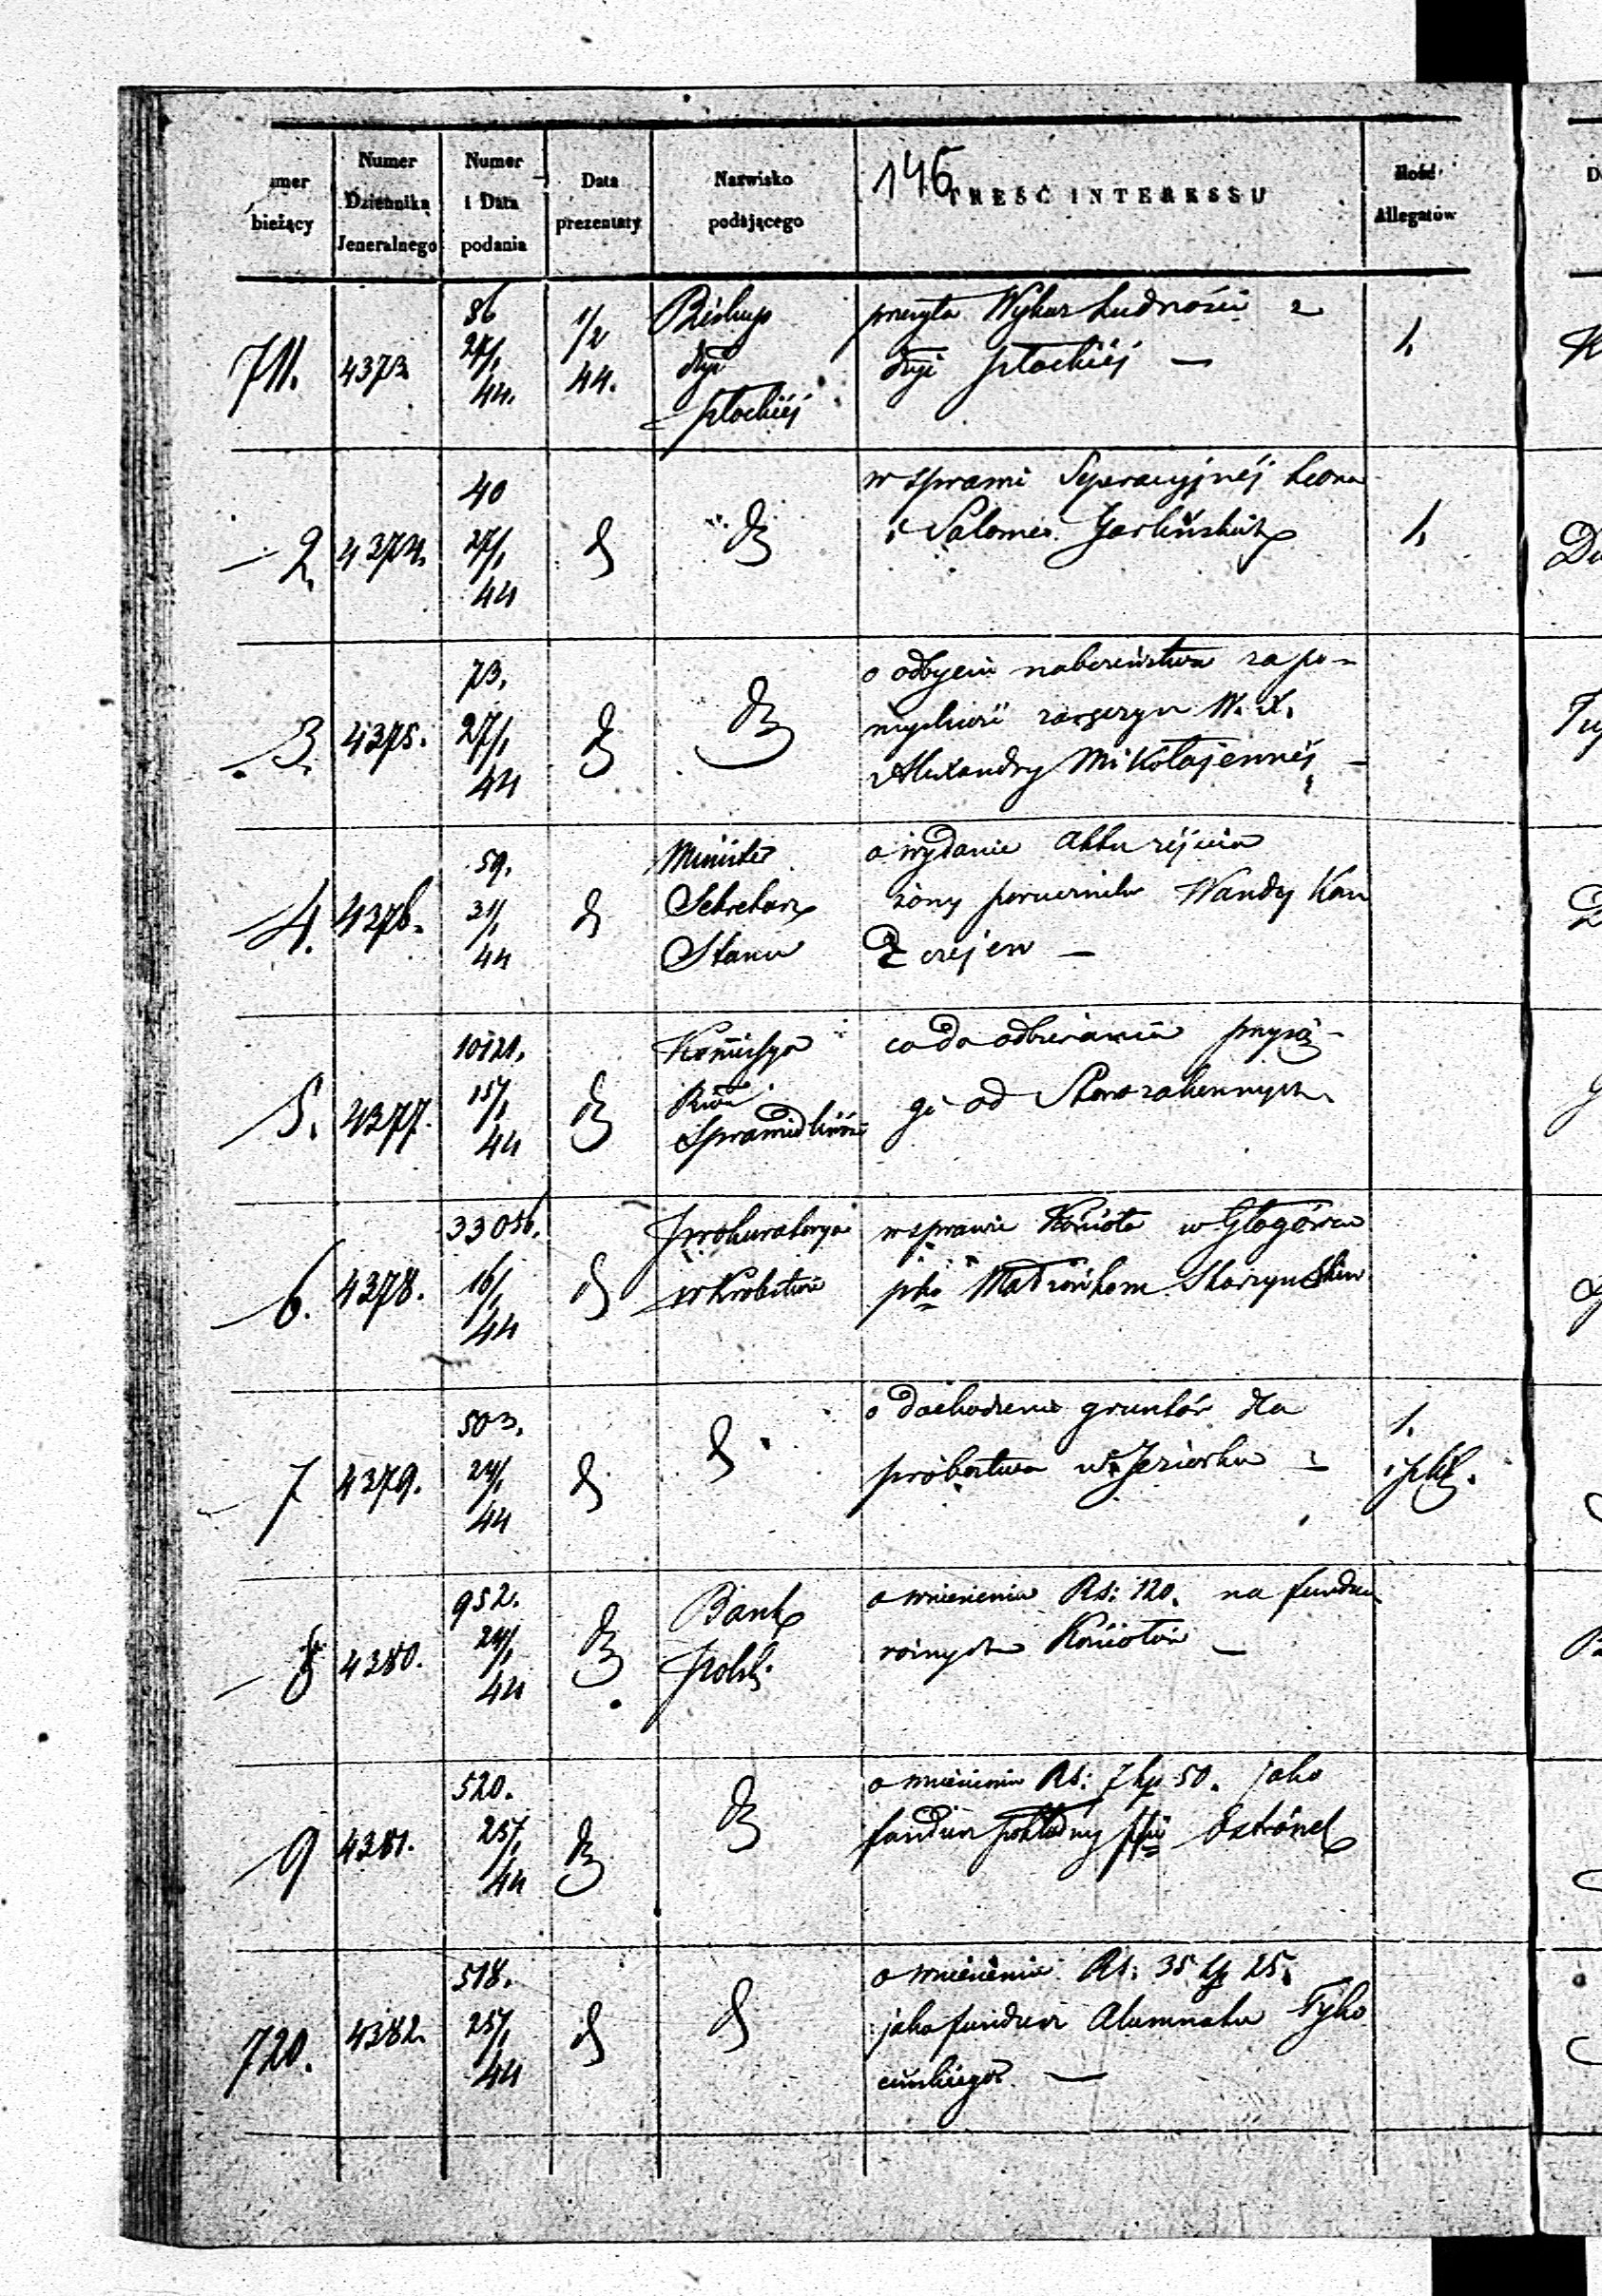 146
umer bieżący | Numer Dziennika Jeneralnego | Numer i Data podania | Data prezentaty | Nazwisko podającego | TREŚĆ INTERESSU | Ilość Allegatów
711. | 4373 | 86 27/1 44. | 1/2 44. | Biskup dyi płockiéj | przesyła Wykaz Ludności z
dyi płockiéj — | 1.
2. | 4374. | 40 27/1 44 | d | do | w sprawie Separacyjnéj Leona
i Salomei Jarlińskich | 1.
3. | 4375. | 73. 27/1 44 | do | do | o odbycie nabożeństwa za po-
myślność zaręczyn W. X.
Alexandry Mikołajewnéj —
4. | 4376. | 59. 31/1 44 | d | Minister Sekretarz Stanu | o wydanie Aktu zéjścia
żony porucznika Wandy Kon
crejew —
5. | 4377. | 10121. 15/1 44 | do | Komissya Rządu Sprawiedliwości | co do odbierania przysię-
gi od Starozakonnych
6. | 4378. | 33056. 16/1 44 | d | Prokuratorya w Królestwie | w sprawie Kościoła w Głogówcu
pko Małżonkom Skarzyńskim
7 | 4379. | 503. 24/1 44 | d | d | o dochodzenie gruntów dla
probostwa w Jeziorku — | 1.
i plik.
8 | 4380. | 952. 24/1 44 | do | Bank Polski | o wniesieniu Rs: 120. na fundusz
różnych Kościołów —
9 | 4381. | 520. 25/1 44 | do | do | o wniesieniu Rs: 7 kp 50. jako
fundusz pokładny Ostrówek
720. | 4382. | 518. 25/1 44 | d | d | o wniesieniu Rs: 35 kp 25.
jako fundusz Alumnatu Tyko
cińskiego —